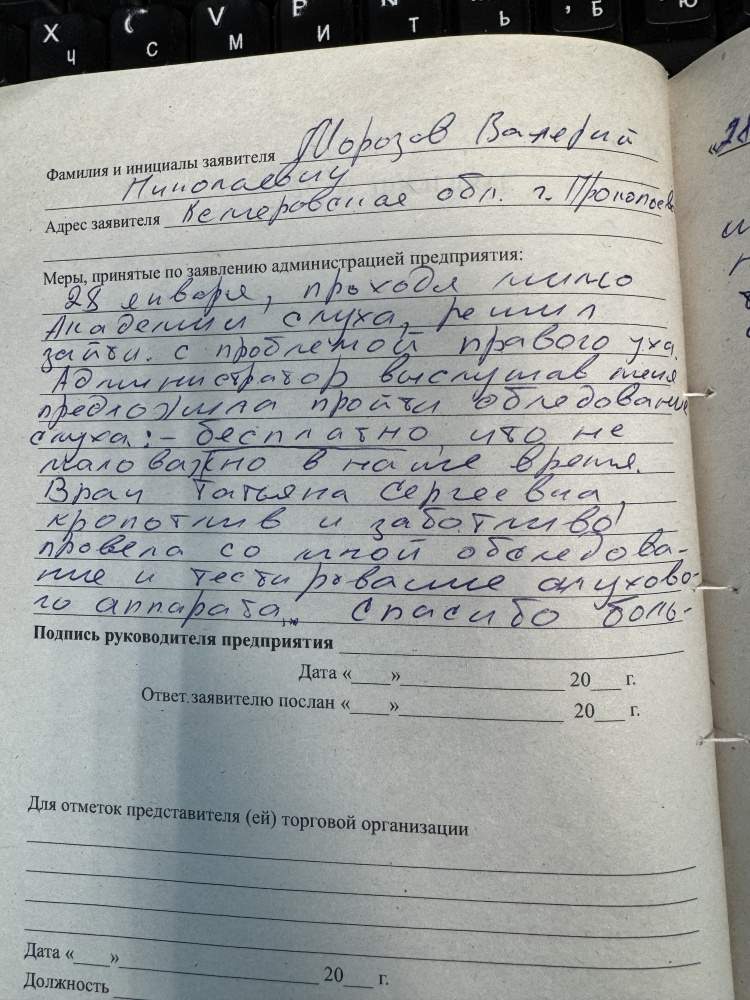 X Ч
С
V М
И
Т
Ь
, Б
Ю
Фамилия и инициалы заявителя Морозов Валерий
Николаевич
Адрес заявителя Кемеровская обл. г. Прокопьевс
Меры, принятые по заявлению администрацией предприятия:
28 января, проходя мимо
Академии слуха, решил
зайти. с проблемой правого уха.
Администратор выслушав меня
предложила пройти обледование
слуха: – бесплатно, что не
маловажно в наше время.
Врач Татьяна Сергеевна,
кропотлив и заботливо
провела со мной обследова-
ние и тестирывание слухово-
го аппарата,, спасибо боль-
Подпись руководителя предприятия
Дата «____» 20___ г.
Ответ заявителю послан «____» 20___ г.
Для отметок представителя (ей) торговой организации
Дата «____» 20___ г.
Должность